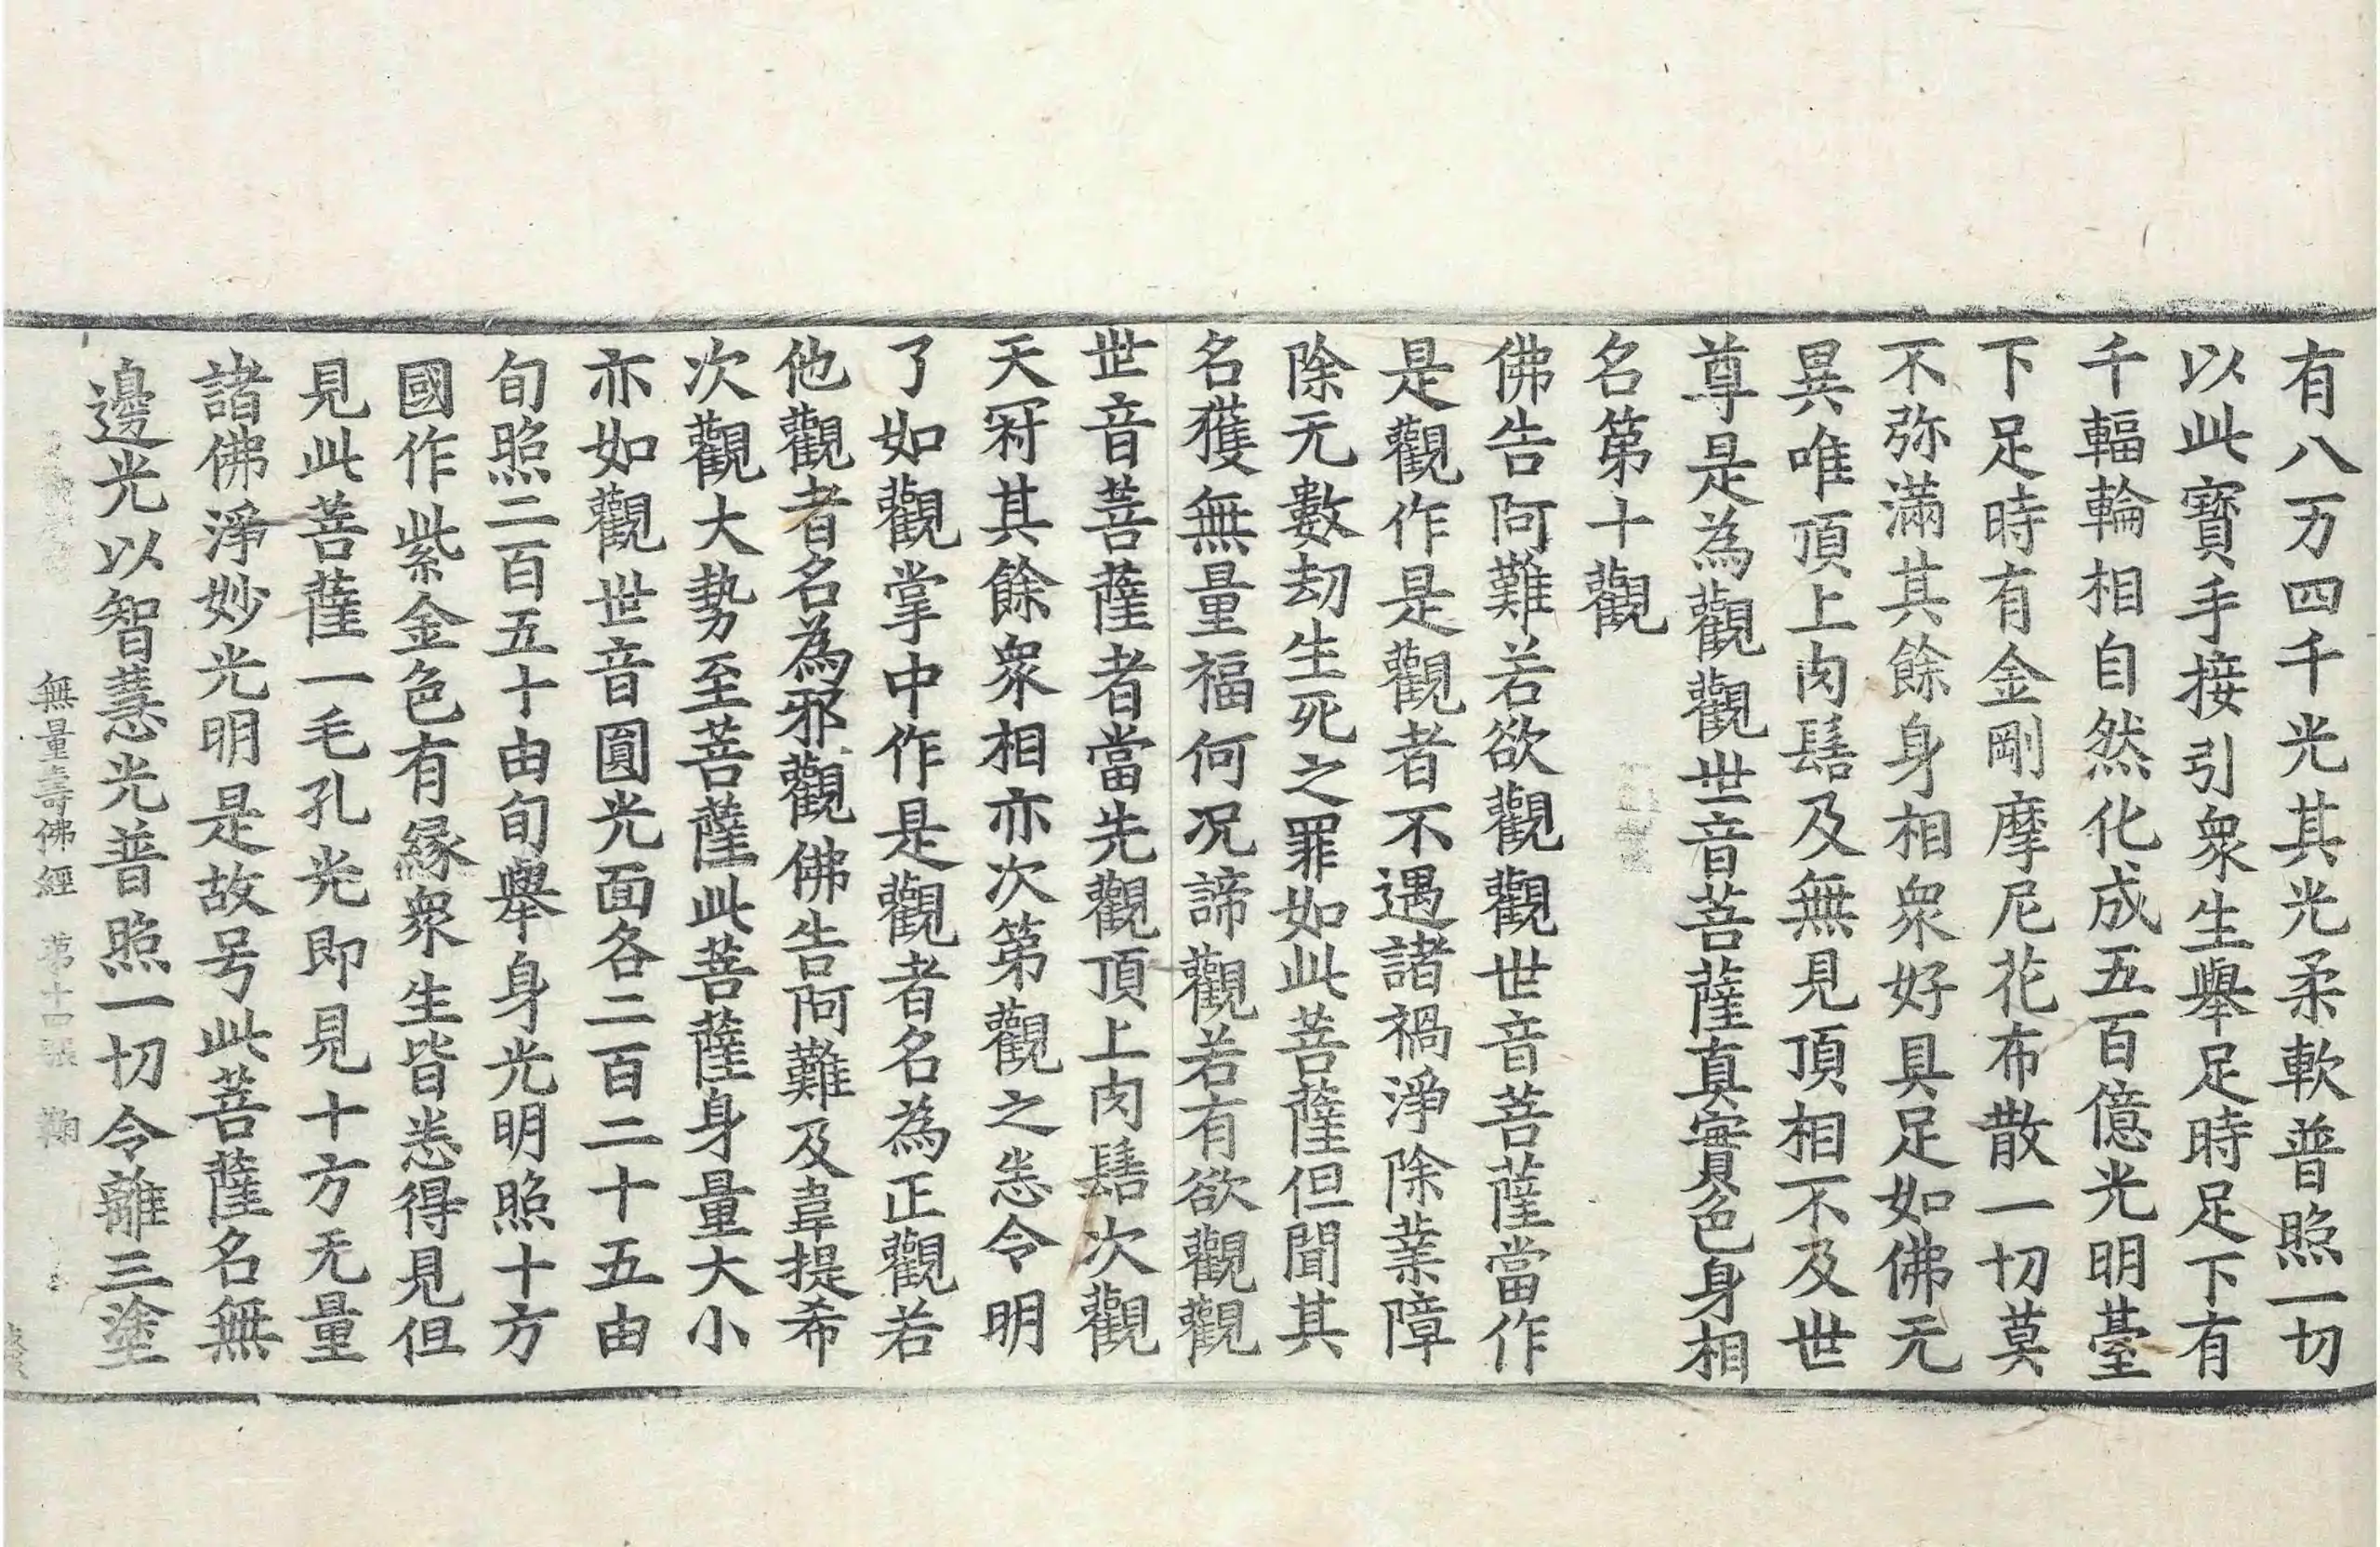 有八万四千光其光柔軟普照一切
以此寳手接引衆生舉足時足下有
千輻輪相自然化成五百億光明臺
下足時有金剛摩尼花布散一切莫
不弥滿其餘身相衆好具足如佛无
異唯頂上肉髻及無見頂相不及世
尊是為觀觀世音菩薩真實色身相
名第十觀
佛告阿難若欲觀觀世音菩薩當作
是觀作是觀者不遇諸禍淨除業障
除无數劫生死之罪如此菩薩但聞其
名獲無量福何况諦觀若有欲觀觀
世音菩薩者當先觀頂上肉髻次觀
天冠其餘衆相亦次第觀之悉令明
了如觀掌中作是觀者名為正觀若
他觀者名為邪觀佛告阿難及韋提希
次觀大勢至菩薩此菩薩身量大小
亦如觀世音圓光面各二百二十五由
旬照二百五十由旬舉身光明照十方
國作紫金色有緣衆生皆悉得見但
見此菩薩一毛孔光即見十方无量
諸佛淨妙光明是故号此菩薩名無
邊光以智慧光普照一切令離三塗
無量壽佛經 第十四張 鞠